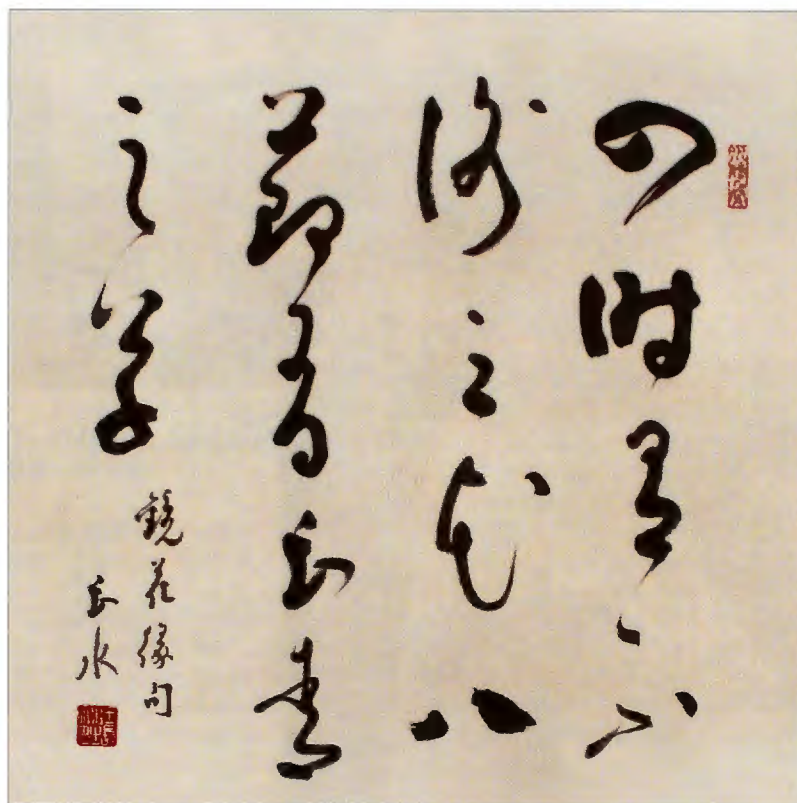 四时有不
谢之花八
节有长青
之草
镜花缘句
长水